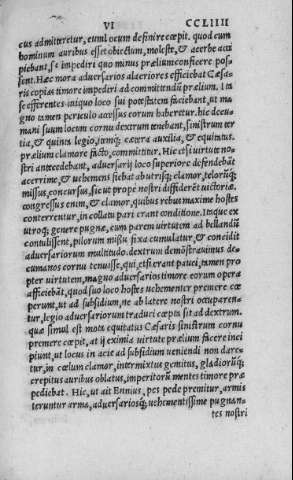 VI CCLIIII
cus admitteretur, eum locum definire cœpit. quod cum
hominum auribus esset obiectum, molestè, & acerbe acci
piebant, se impediri quo minus prælium conficere pos
sent. Hæc mora aduersarios alacriores efficiebat Cæsa-
ris copias timore impediri ad committendũ prælium. Ita
se efferentes iniquo loco sui potestatem faciebant, ut ma
gno tamen periculo accessus eorum haberetur. hic decu-
mani suum locum cornu dextrum tenebant, sinistrum ter
tia, & quinta legio, itemq; cætera auxilia, & equitatus.
prælium clamore facto, committitur. Hic etsi uirtute no
stri antecedebant, aduersarij loco superiore defendebãt
acerrime, & uehemens fiebat ab utrisq; clamor, telorũq;
missus, concursus, sic ut propè nostri diffiderẽt uictoriæ.
congressus enim, & clamor, quibus rebus maxime hostes
conterrentur, in collatu pari erant conditione. Itaque ex
utroq; genere pugnæ, cum parem uirtutem ad bellandũ
contulissent, pilorum missu fixa cumulatur, & concidit
aduersariorum multitudo. dextrum demõstrauimus de-
cumanos cornu tenuisse, qui, etsi erant pauci, tamen pro
pter uirtutem, magno aduersarios timore eorum opera
afficiebãt, quod suo loco hostes uehementer premere cœ
perunt, ut ad subsidium, ne ab latere nostri occuparen-
tur, legio aduersariorum traduci cœpta sit ad dextrum.
quæ simul est mota equitatus Cæsaris sinistrum cornu
premere cœpit, at ij eximia uirtute prælium facere inci
piunt, ut locus in acie ad subsidium ueniendi non dare-
tur, in cœlum clamor, intermixtus gemitus, gladiorũq;
crepitus auribus oblatus, imperitorũ mentes timore præ
pediebat. Hic, ut ait Ennius, pes pede premitur, armis
teruntur arma, aduersariosq; uehementissime pugnan-
tes nostri